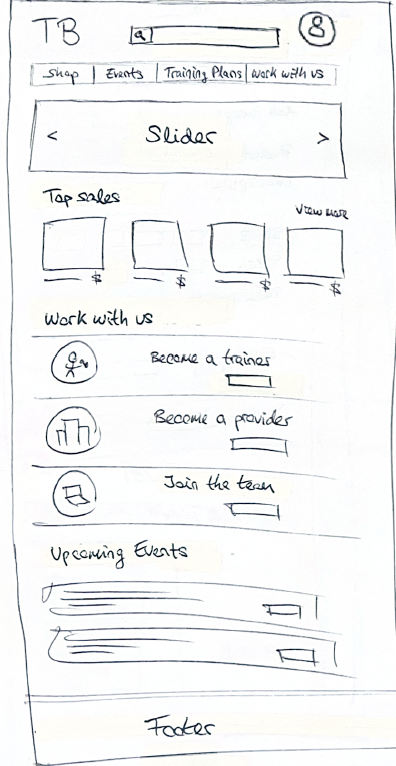 TB
Shop | Events | Training Plans | Work with us
< Slider >
Top sales
View more
$ $ $ $
Work with us
Become a trainer
Become a provider
Join the team
Upcoming Events
Footer